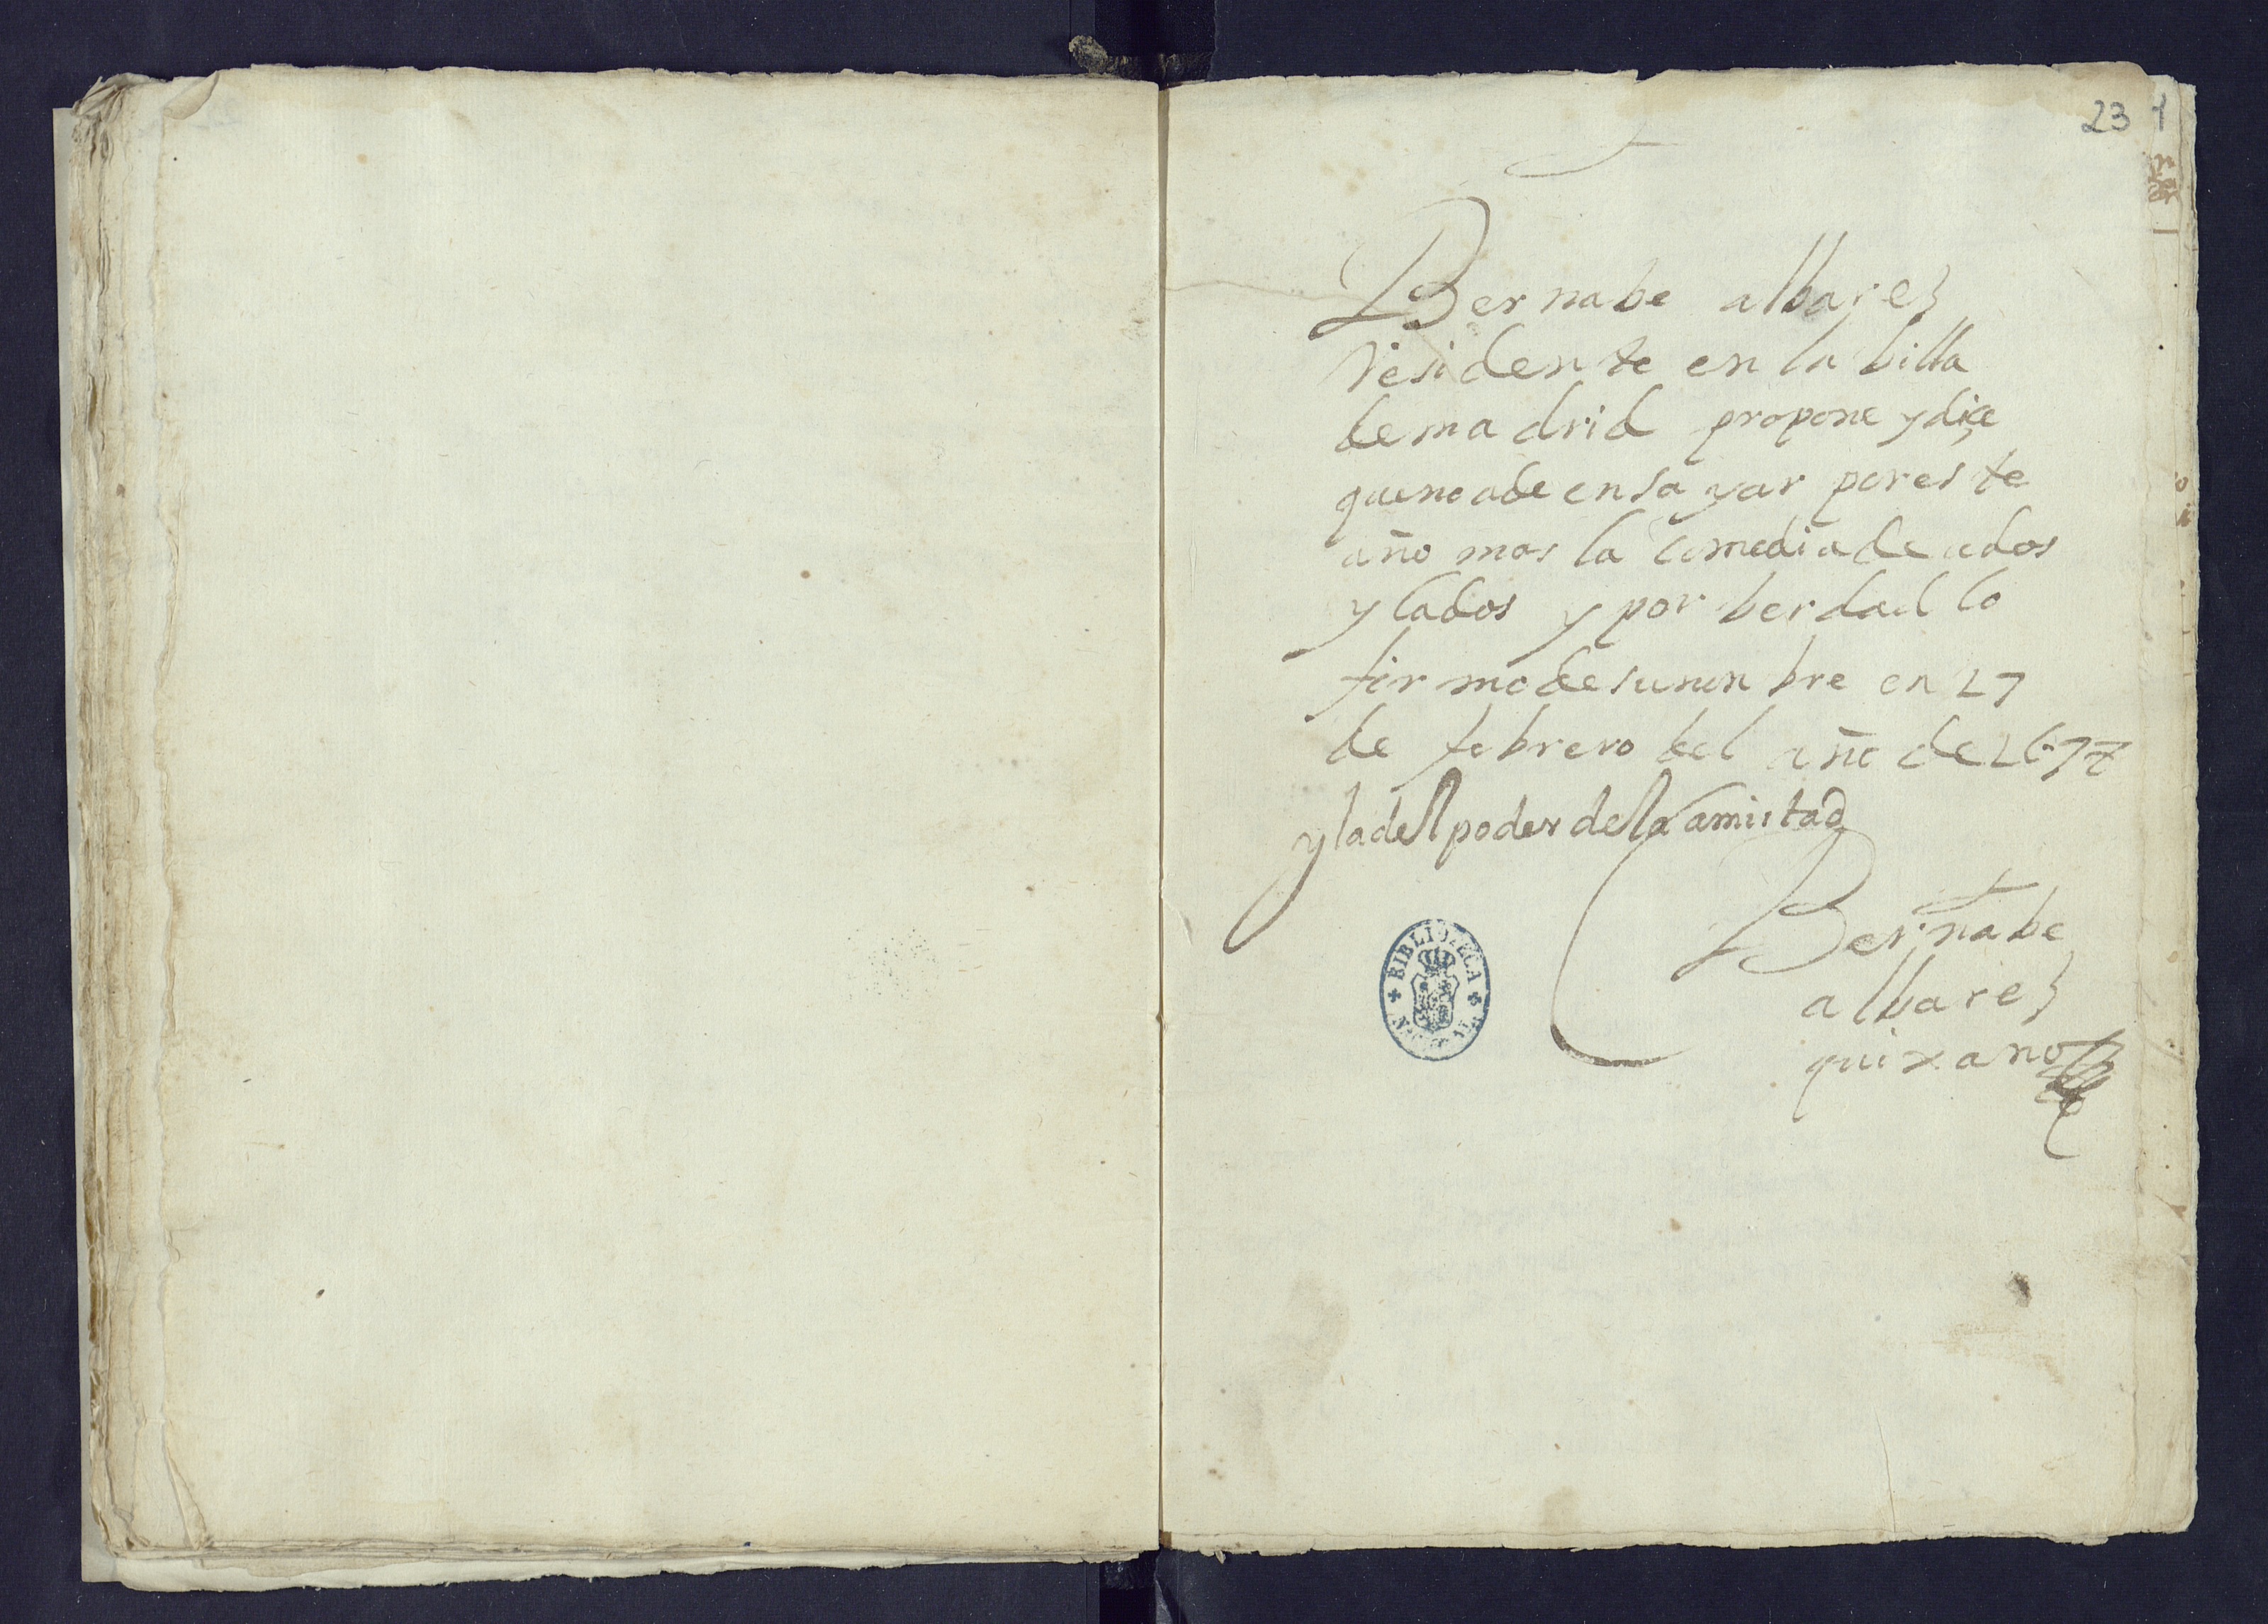 23 1
Bernabe albarez
residente en la billa
de madrid propone y dice
que no a de ensayar por este
año mas la comedia de ados
y lados y por berdad lo
firmo de su nonbre en 27
de febrero del año de 1677
y la del poder de la amistad
Bernabe
albarez
quixano
BIBLIOTECA NACIONAL